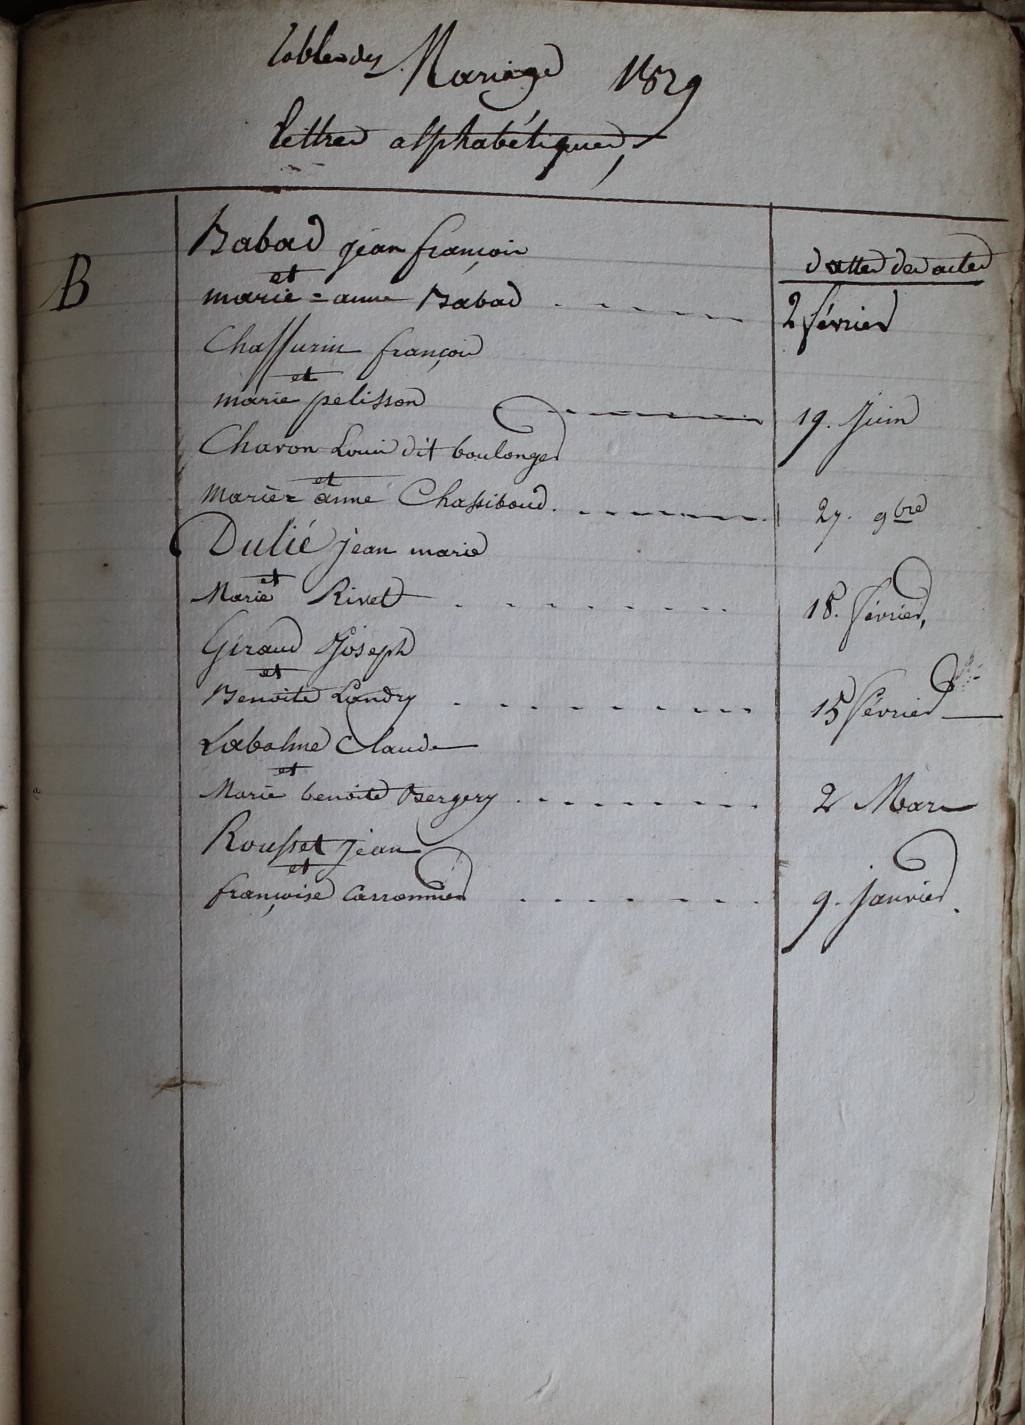 Table des Mariages 1829
lettres alphabétiques,
B
Babad jean françois
et
dattes des actes
marie=anne Babad
2 février
Chassurin françois
et
marie pelisson
19. Juin
Charon Louis dit boulonger
et
Marie=anne Chassiboud.
27. 9bre
Dulié jean marie
et
Marie Rivet
18. février,
Giraud Joseph
et
Benoite Landry
15 février
Labalme Claude
et
Marie benoite Bergery
2 Mars
Rousset jean
et
françoise
9. janvier.